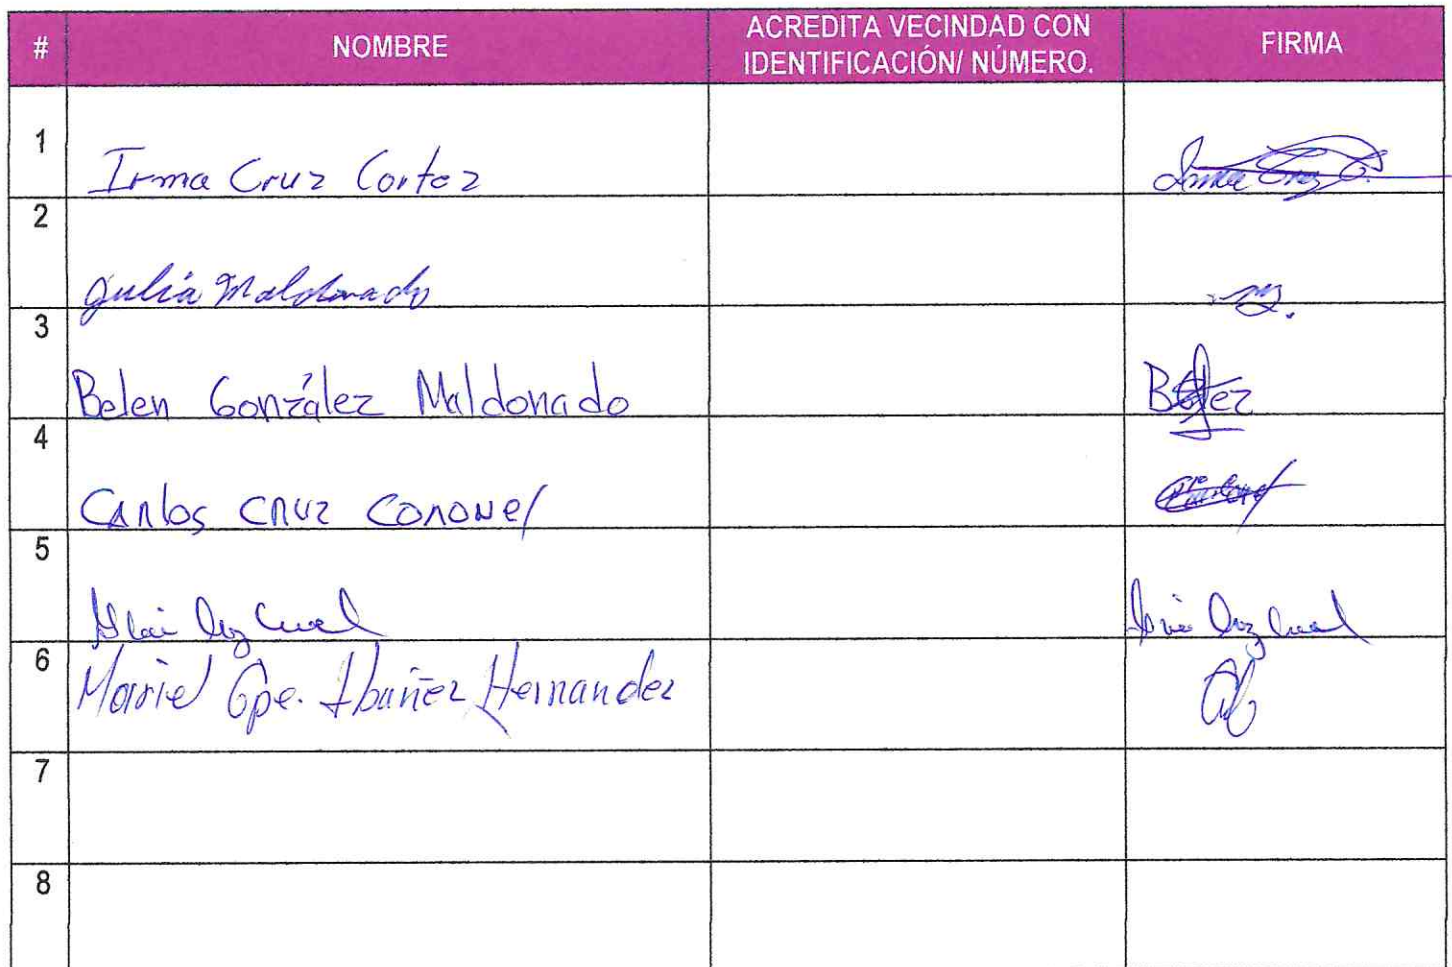 # NOMBRE ACREDITA VECINDAD CON IDENTIFICACIÓN/ NÚMERO. FIRMA
1 Irma Cruz Cortez Irma Cruz C.
2 Julia Maldonado
3 Belen González Maldonado
4 Carlos Cruz Coronel
5
6 Mariel Gpe. Ibañez Hernandez
7
8